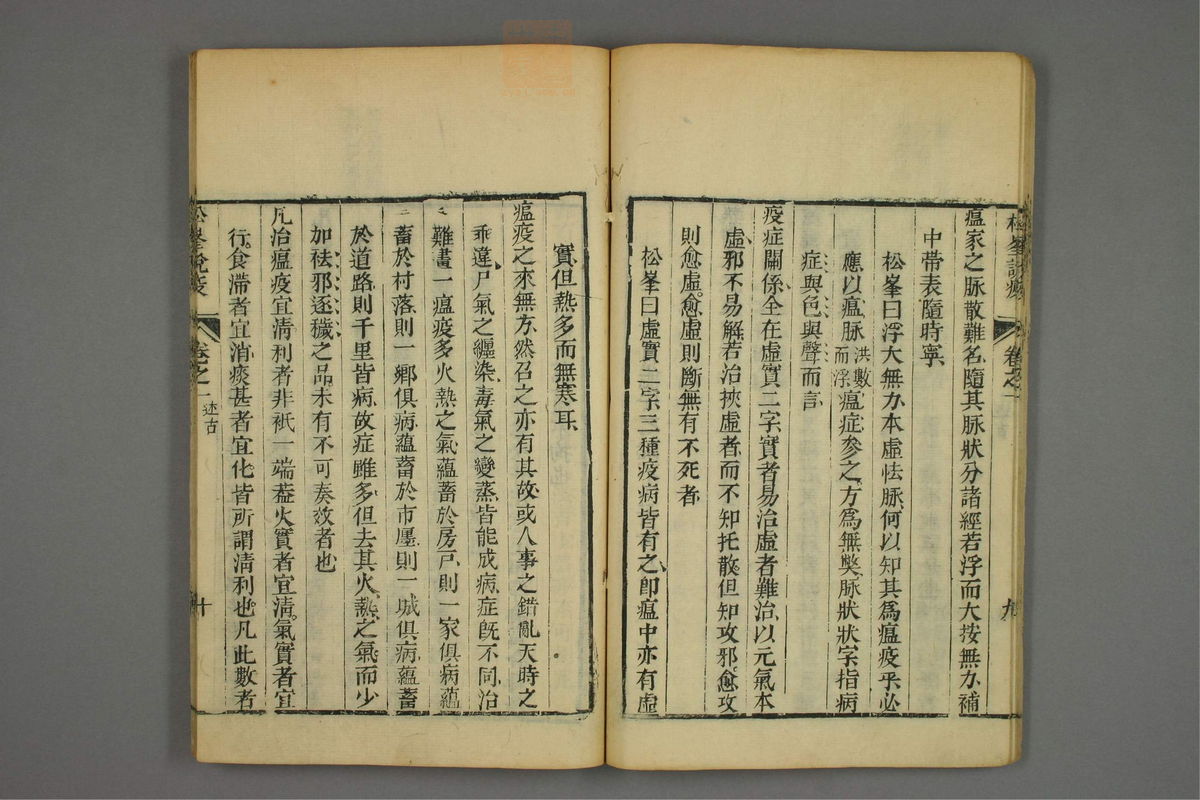 松峯說疫 卷之一 九
瘟家之脉散難名隨其脉狀分諸經若浮而大按無力補
中帶表隨時寧
松峯曰浮大無力本虛怯脉何以知其爲瘟疫乎必
應以瘟脉洪數而浮瘟症參之方爲無獘脉狀狀字指病
症與色與聲而言
疫症關係全在虛實二字實者易治虛者難治以元氣本
虛邪不易解若治挾虛者而不知托散但知攻邪愈攻
則愈虛愈虛則斷無有不死者
松峯曰虛實二字三種疫病皆有之卽瘟中亦有虛
實但熱多而無寒耳
瘟疫之來無方然召之亦有其故或人事之錯亂天時之
乖違尸氣之纏染毒氣之變蒸皆能成病症旣不同治
難畫一瘟疫多火熱之氣蘊蓄於房戸則一家俱病蘊
蓄於村落則一鄉俱病蘊蓄於市廛則一城俱病蘊蓄
於道路則千里皆病故症雖多但去其火熱之氣而少
加祛邪逐穢之品未有不可奏效者也
凡治瘟疫宜清利者非衹一端葢火實者宜清氣實者宜
行食滯者宜消痰甚者宜化皆所謂清利也凡此數者
松峯說疫 卷之一 述古 十